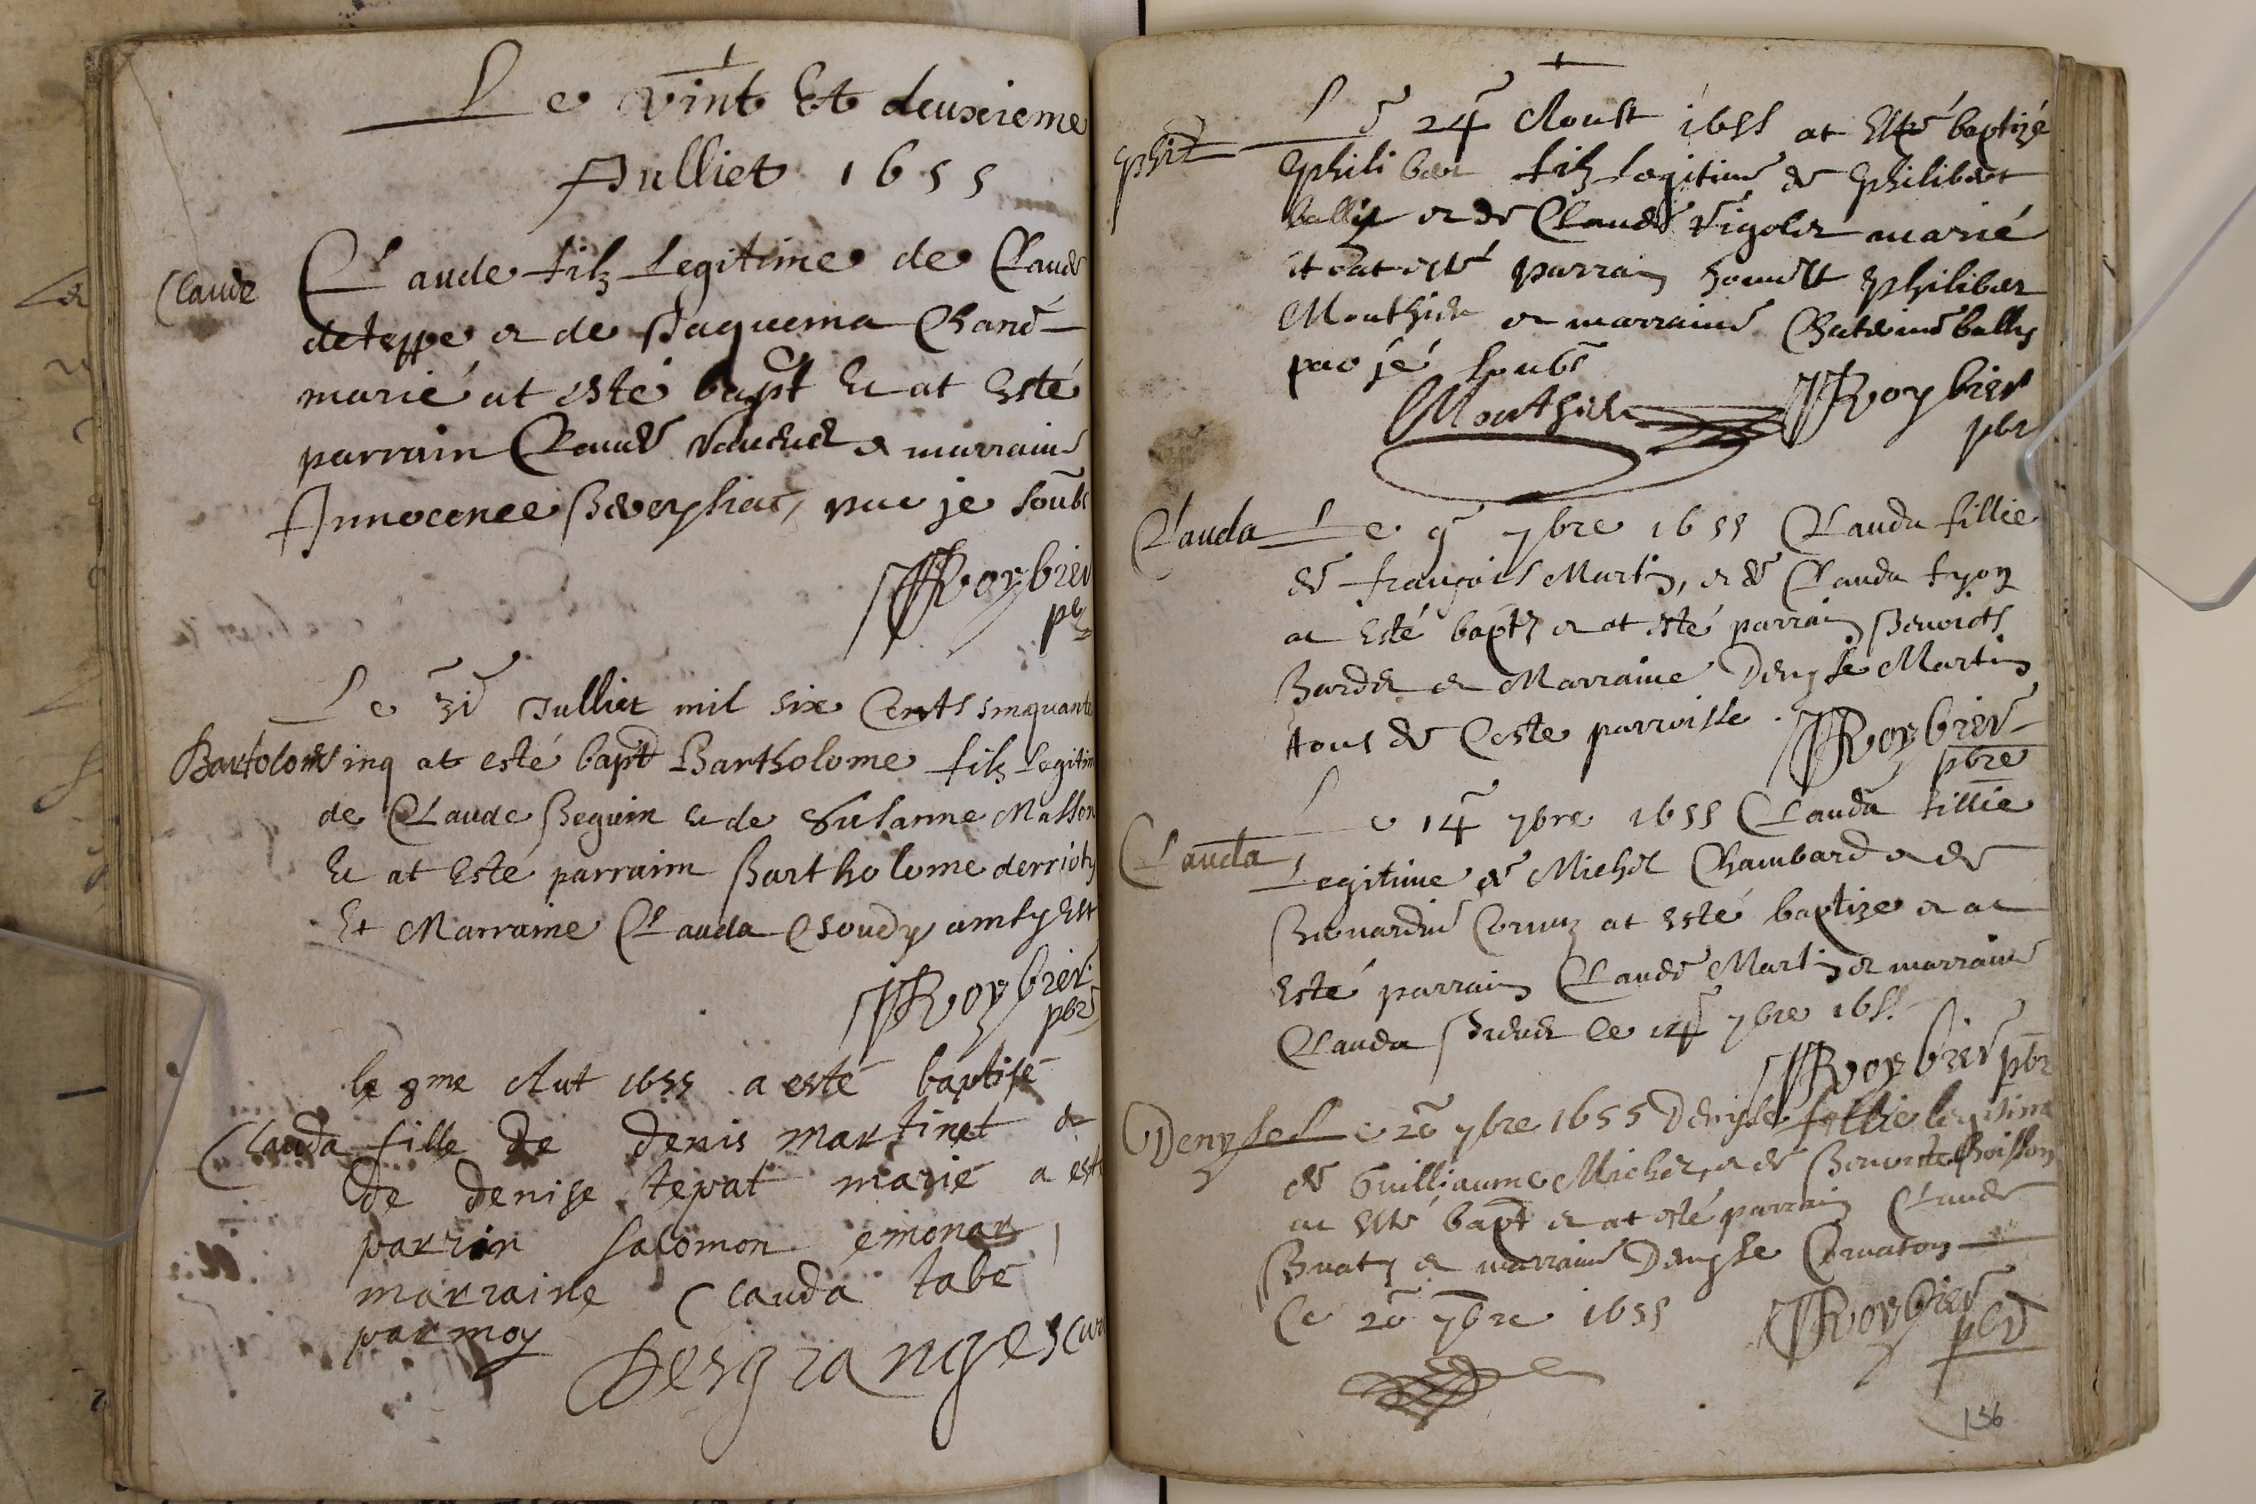 Le vint Et deuxieme
Julliet 1655
Claude
Claude filz Legitime de Claude
deteppe et de Jaquema Chane
marié at esté bapt Et at Esté
parrain Claude et marraine
Innocence par je soubs
Roybier
pb
Le 31 Julliet mil six Cents sinquante
Bartolome
sinq at esté bapt Bartholome filz Legitim
de Claude Beguin Et de Susanne Masson
Et at Esté parrain Bartholome derrioty
Et Marraine Clauda Coudy amsy Est
Roybier
pbre
le 9me Aut 1655 a esté baptisé
Clauda fille de denis martinet et
de denise tepat marié a esté
parrin salomon emonar
marraine Clauda tabe
par moy
Desgranges cur
Phi
Le 24 Aoust 1655 at Esté baptizé
Philiber filz Legitime de Philibert
bally et de Claude Vigoler marié
et at esté parrain honneste Philiber
Monthier et marraine Chaterine bally
par jé soubs
Monthier Roybier
pbr
Clauda
Le 9 7bre 1655 Clauda fillie
de françois Martin, et de Clauda fyon
at Esté bapt et at esté parrain Benoicts
Bardet et Marraine Denyse Martin
tous de Ceste parroisse. Roybier
pbre
Clauda
Le 14 7bre 1655 Clauda fillie
Legitime de Michel Chambard et de
Bernardine Cornuz at esté baptize et at
Esté parrain Claude Martin et marraine
Clauda Le 14 7bre 1655
Roybier pbr
Denyse
Le 20 7bre 1655 Denyse fillie legitime
de Guilliaume Michel, et de Benoiste Boisson
at Esté bapt et at esté parrain Claude
Buaty et marraine Denyse Cornaton
Le 20 7bre 1655
Roybier
pbr
136